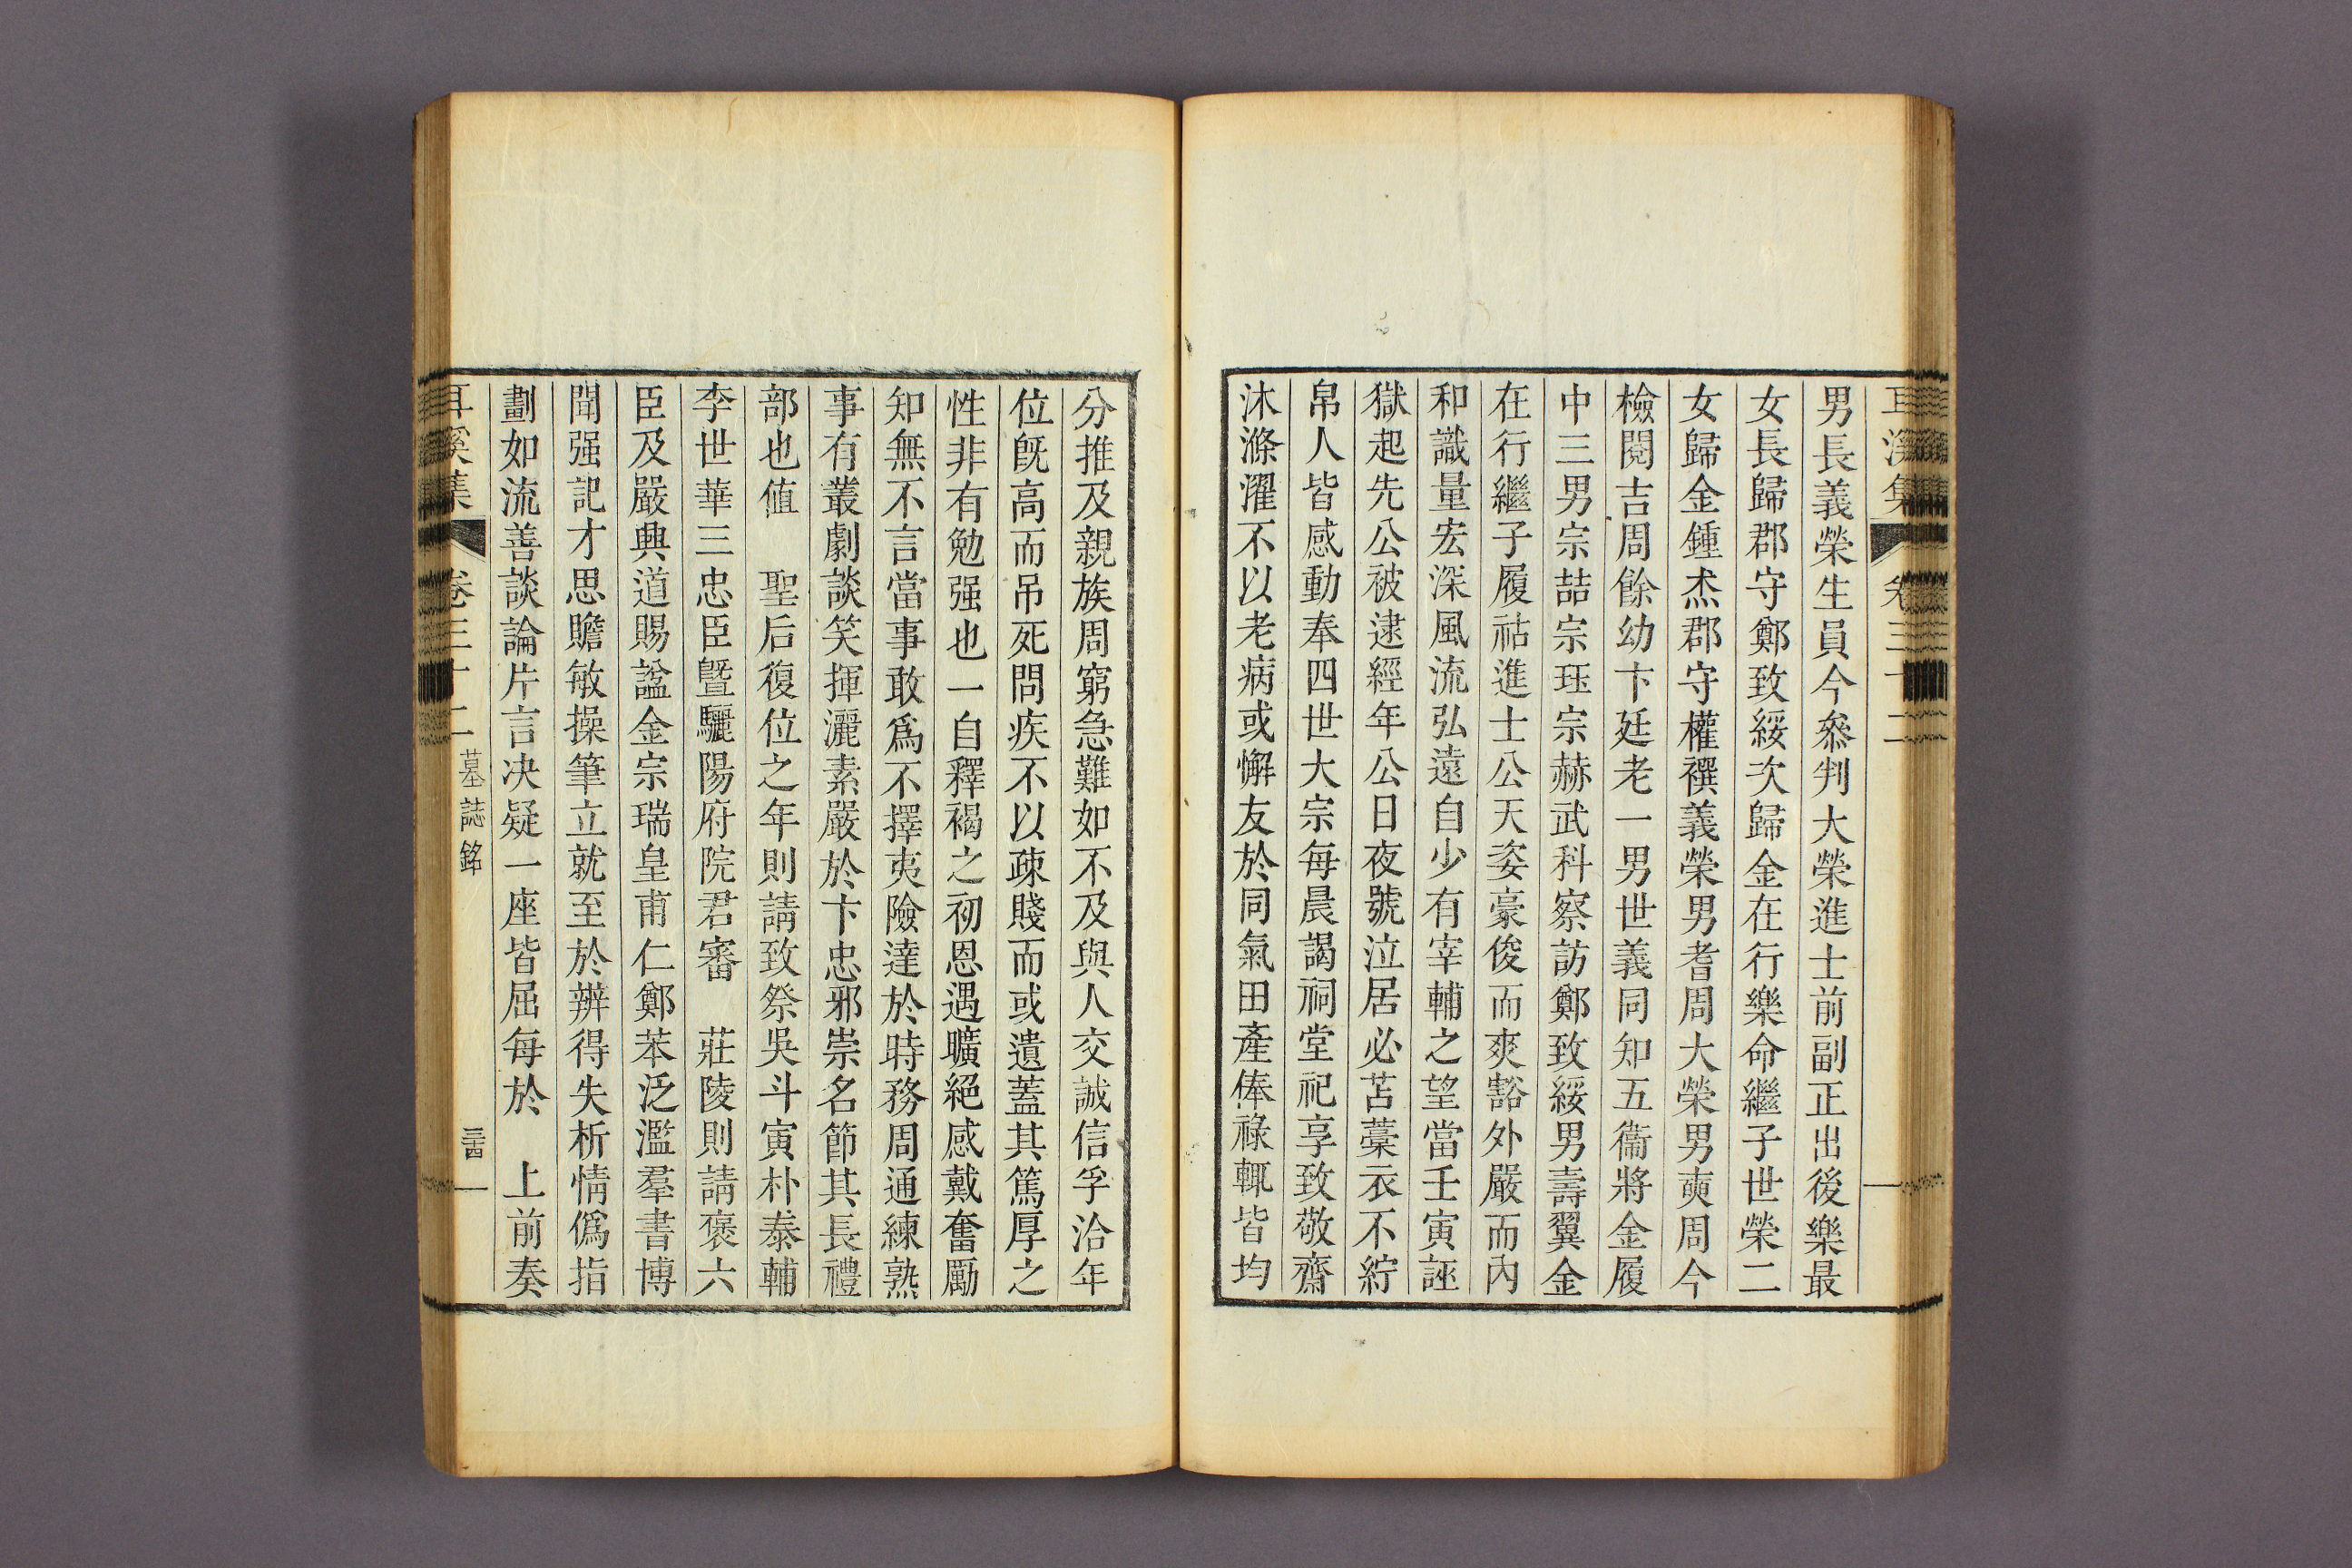 耳溪集 卷三十二
男長義榮生員今叅判大榮進士前副正出後樂最
女長歸郡守鄭致綏次歸金在行樂命繼子世榮二
女歸金鍾杰郡守權襈義榮男耆周大榮男奭周今
檢閱吉周餘幼卞廷老一男世義同知五衞將金履
中三男宗喆宗珏宗赫武科察訪鄭致綏男壽翼金
在行繼子履祜進士公天姿豪俊而爽豁外嚴而內
和識量宏深風流弘遠自少有宰輔之望當壬寅誣
獄起先公被逮經年公日夜號泣居必苫藁衣不紵
帛人皆感動奉四世大宗每晨謁祠堂祀享致敬齋
沐滌濯不以老病或懈友於同氣田產俸祿輒皆均
分推及親族周窮急難如不及與人交誠信孚洽年
位旣高而吊死問疾不以疎賤而或遺蓋其篤厚之
性非有勉强也一自釋褐之初恩遇曠絕感戴奮勵
知無不言當事敢爲不擇夷險達於時務周通練熟
事有叢劇談笑揮灑素嚴於卞忠邪崇名節其長禮
部也値 聖后復位之年則請致祭吳斗寅朴泰輔
李世華三忠臣曁驪陽府院君審 莊陵則請褒六
臣及嚴興道賜諡金宗瑞皇甫仁鄭苯泛濫羣書博
聞强記才思贍敏操筆立就至於辨得失析情僞指
劃如流善談論片言决疑一座皆屈每於 上前奏
耳溪集 卷三十二 墓誌銘 三十四